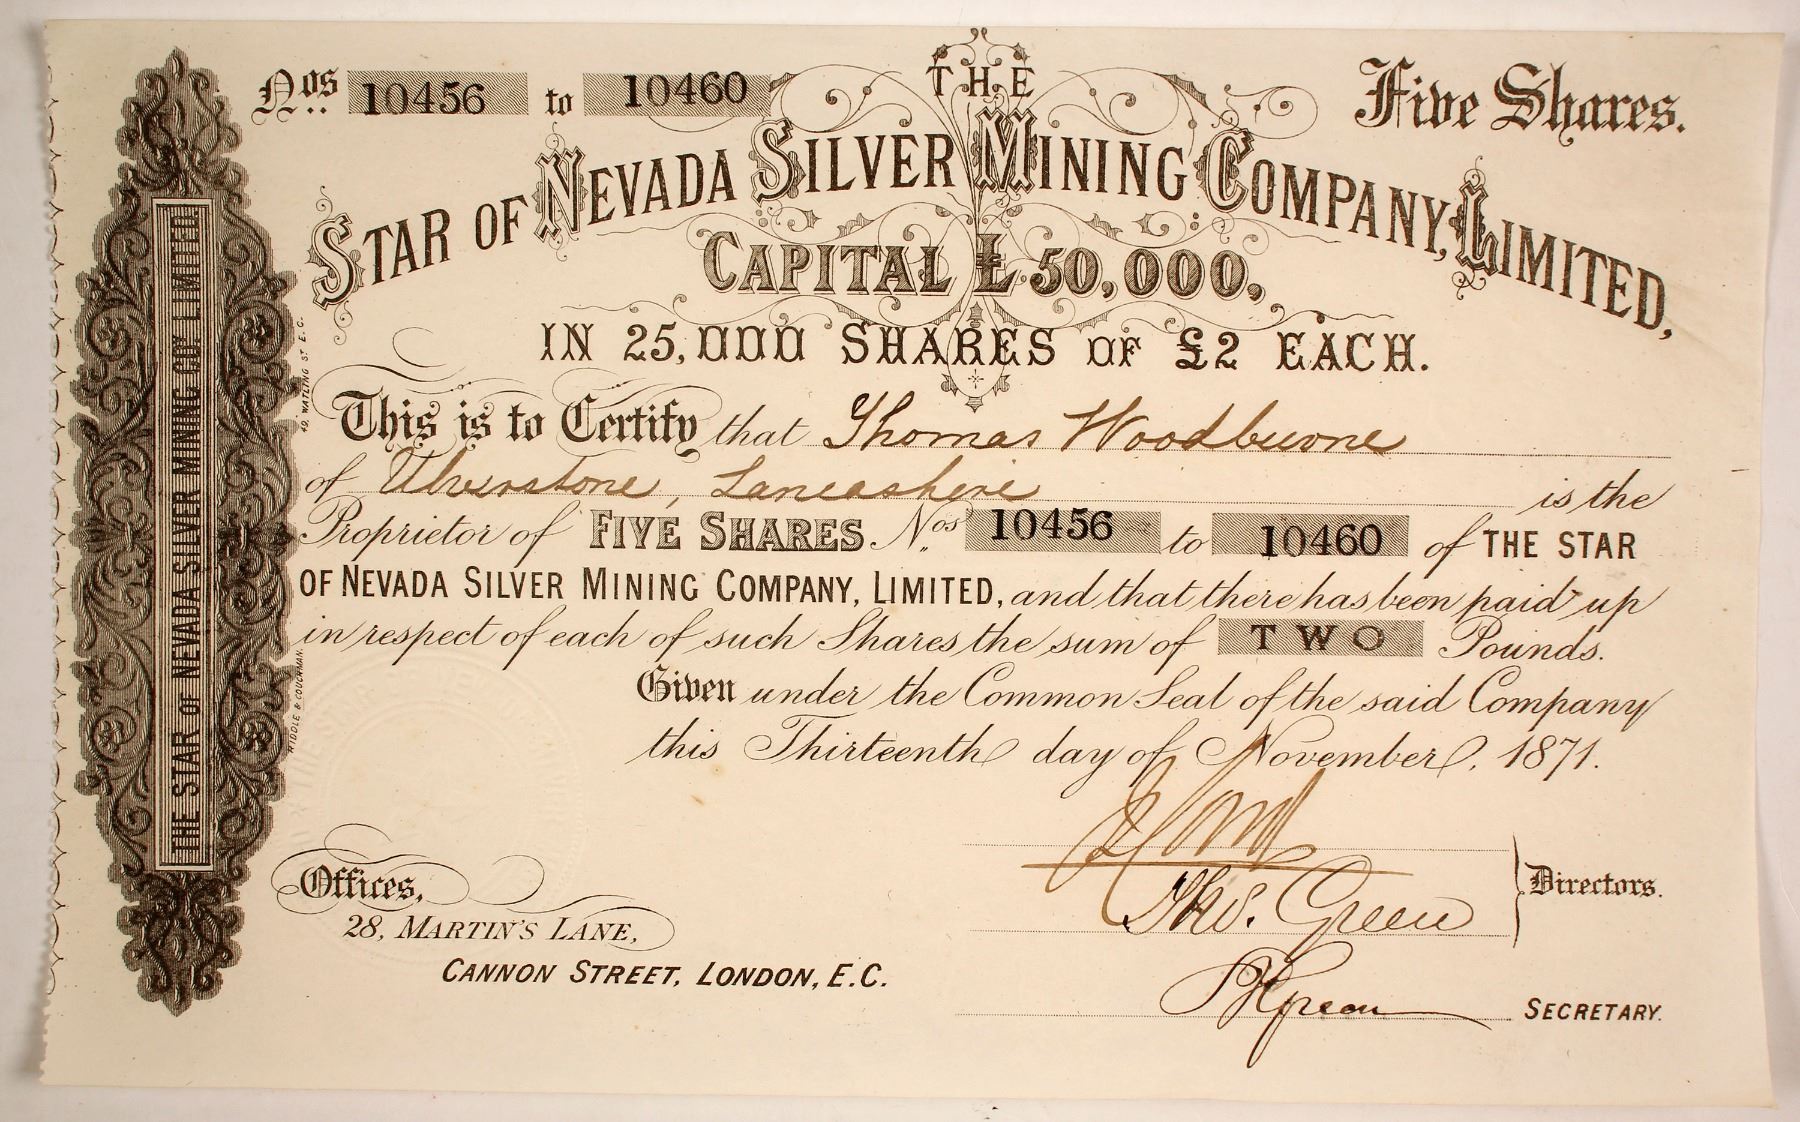 Nos. 10456 to 10460
Five Shares.
THE
STAR OF NEVADA SILVER MINING COMPANY, LIMITED,
CAPITAL £50,000,
IN 25,000 SHARES OF £2 EACH.
This is to Certify that Thomas Woodburne
of Ulverstone, Lancashire is the
Proprietor of FIVE SHARES. Nos. 10456 to 10460 of THE STAR
OF NEVADA SILVER MINING COMPANY, LIMITED, and that there has been paid up
in respect of each of such Shares the sum of TWO Pounds.
Given under the Common Seal of the said Company
this Thirteenth day of November, 1871.
Thos. Green
Directors.
Green
SECRETARY.
Offices,
28, MARTIN'S LANE,
CANNON STREET, LONDON, E.C.
THE STAR OF NEVADA SILVER MINING COY. LIMITED.
RIDDLE & COUCHMAN.
49, WATLING ST E.C.